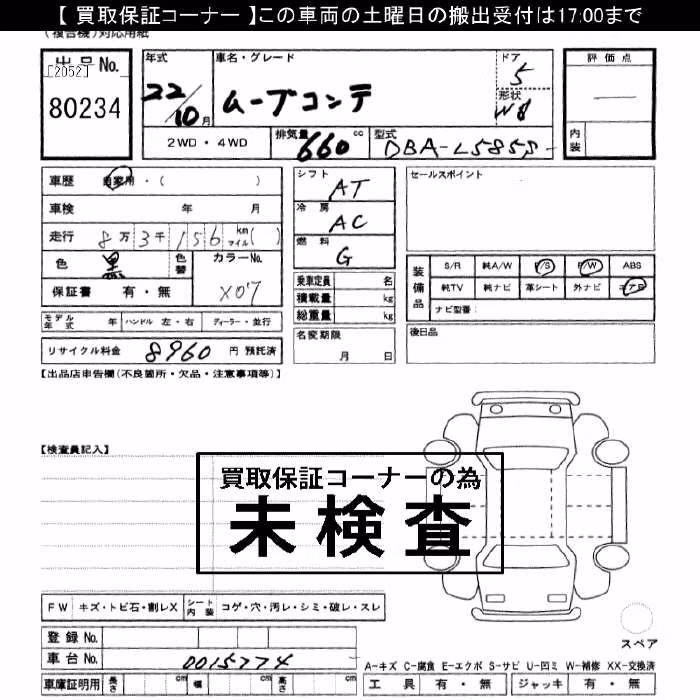 【 買取保証コーナー 】この車両の土曜日の搬出受付は17:00まで
(複合機)対応用紙
出品 No.
[2052]
80234
年式
22/10月
車名・グレード
ムーブコンテ
ドア
5
形状
2WD・4WD
排気量
660cc
型式
DBA-L585S-
評価点
内装
車歴 自家用・( )
車検 年 月
走行 8万3千156 km マイル( )
色 黒 色替
カラーNo.
X07
保証書 有・無
モデル年式 年 ハンドル 左・右 ディーラー・並行
リサイクル料金 8960 円 預託済
シフト AT
冷房 AC
燃料 G
乗車定員 名
積載量 kg
総重量 kg
名変期限
月 日
セールスポイント
装備品
S/R 純A/W P/S P/W ABS
純TV 純ナビ 革シート 外ナビ エアB
ナビ型番:
後日品
【出品店申告欄(不良箇所・欠品・注意事項等)】
【検査員記入】
買取保証コーナーの為
未検査
FW キズ・トビ石・割レX シート内装 コゲ・穴・汚レ・シミ・破レ・スレ
登録 No.
車台 No. 0015774
車庫証明用 長さ cm 幅 cm 高さ cm
スペア
A-キズ C-腐食 E-エクボ S-サビ U-凹ミ W-補修 XX-交換済
工具 有・無 ジャッキ 有・無